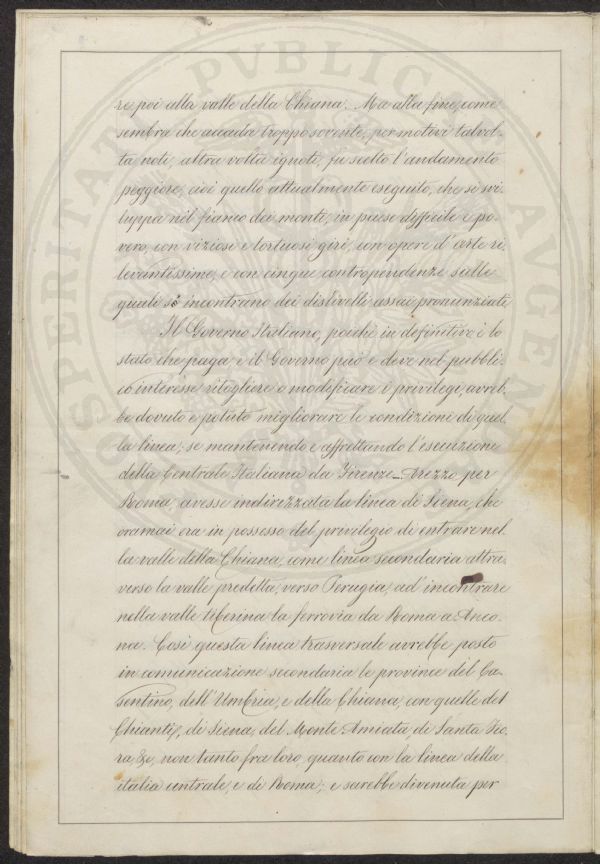 re poi alla valle della Chiana. Ma alla fine, come
sembra che accada troppo sovente, per motivi talvol-
ta noti, altra volta ignoti, fu scelto l'andamento
peggiore, cioè quello attualmente eseguito, che si svi-
luppa nel fianco dei monti, in paese difficile e po-
vero, con viziosi e tortuosi giri, con opere d'arte ri-
levantissime, e con cinque contropendenze sulle
quali si incontrano dei dislivelli assai pronunziati
Il Governo Italiano, poichè in definitiva è lo
stato che paga, e il Governo può e deve nel pubbli-
co interesse ritogliere o modificare i privilegi, avreb-
be dovuto e potuto migliorare le condizioni di quel-
la linea; se mantenendo e affrettando l'esecuzione
della Centrale Italiana da Firenze-Arezzo per
Roma, avesse indirizzata la linea di Siena, che
oramai era in possesso del privilegio di entrare nel-
la valle della Chiana, come linea secondaria attra-
verso la valle predetta, verso Perugia, ad incontrare
nella valle tiberina la ferrovia da Roma a Anco-
na. Così questa linea trasversale avrebbe posto
in comunicazione secondaria le province del Ca-
sentino, dell'Umbria, e della Chiana, con quelle del
Chianti, di Siena, del Monte Amiata, di Santa Fio-
ra &c, non tanto fra loro, quanto con la linea della
italia centrale, e di Roma; e sarebbe divenuta per
PROSPERITATI PVBLICAE AVGENDAE